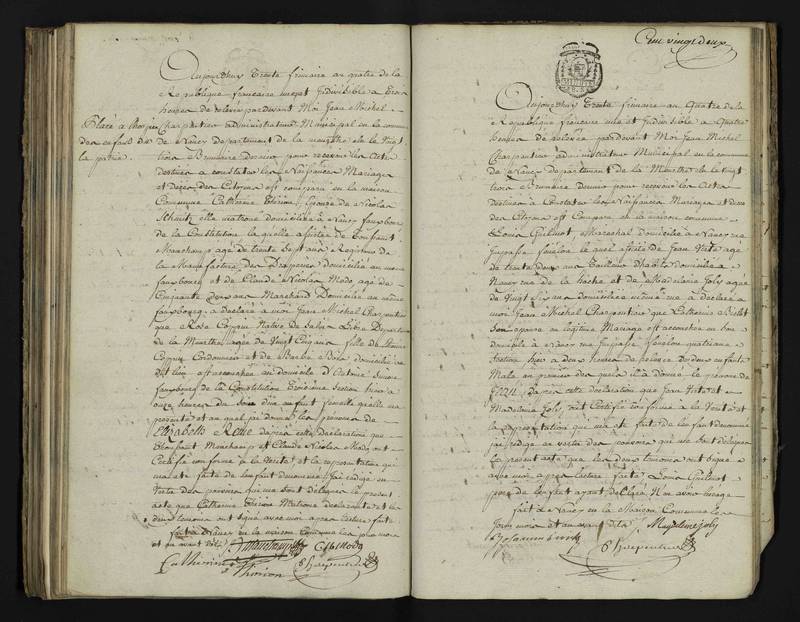 Aujourdhuy trente frimaire an quatre de la
Republique francaise une et Indivisible a trois
heures de relevée pardevant Moi Jean Michel
Charpentier administrateur Municipal en la commune
de Nancy département de la meurthe élu le vingt
trois Brumaire dernier pour recevoir les actes
destinés a constater les Naissances Mariages
et Deces des Citoyens est comparu en la maison
Commune Catherine Thirion Epouse de Nicolas
Schmitz elle matrone domiciliée à Nancy fauxbourg
de la Constitution laquelle assistée de Toussaint
Monchamp agé de trente Sept ans Registreur de
la Manufacture des Draperies domicilié au même
fauxbourg et de Claude Nicolas Mody agé de
Cinquante deux ans Marchand Domicilié au même
fauxbourg a déclaré a moi Jean Michel Charpentier
que Rose Native de Salin Libre Département
de la Meurthe agée de Vingt Cinq ans fille de
Cordonnier et de Barbe domiciliés au
dit lieu est accouchée au domicile d'Antoine
fauxbourg de la Constitution troisieme Section hier a
onze heures du Soir d'un enfant femelle qu'elle m'a
presenté et auquel j'ai donné les prenoms de
Elizabeth Rose d'après cette déclaration que
Toussaint Monchamp et Claude Nicolas Mody ont
Certifié conforme a la Verité et la representation qui
m'a eté faite de l'enfant denommé j'ai rédigé en
Vertu des pouvoirs qui me sont délégués le present
acte que Catherine Thirion Matrone declarante et les
deux temoins ont signé avec moi apres lecture faite
fait a Nancy en la maison Commune les jour mois
et an avant dits
Monchamp C N Mody
Catherine Thirion Charpentier
Placé a l'hospice
des enfants de
la patrie.
Cent vingt deux
Aujourdhuy trente frimaire an Quatre de la
Republique francaise une et Indivisible a Quatre
heures de relevée pardevant Moi Jean Michel
Charpentier administrateur Municipal en la commune
de Nancy département de la Meurthe élu le vingt
trois Brumaire dernier pour recevoir les actes
destinés a Constater les Naissances Mariages et deces
des Citoyens est Comparu en la maison commune
Louis Guilnot Marechal domicilié a Nancy rue
Joseph lequel assisté de Jean agé
de trente deux ans Tailleur d'habits domicilié a
Nancy rue de la et de Madelaine Joly agée
de Vingt Six ans domiciliée même rue a déclaré a
moi Jean Michel Charpentier que Catherine
Son epouse en legitime Mariage est accouchée en son
domicile a Nancy rue Joseph quatrieme
Section hier a deux heures de relevée de deux enfants
Male au premier des quels il a donné le prénom de
d'après cette déclaration que Jean et
Madelaine Joly ont Certifié conforme a la Verité et
la representation qui m'a eté faite de l'enfant denommé
j'ai rédigé en vertu des pouvoirs qui me sont délégués
le present acte que les deux temoins ont signé
avec moi apres lecture faite Louis Guilnot
pere de l'enfant ayant déclaré N'en avoir l'usage
fait a Nancy en la Maison Commune les
jour mois et an avant dits Magdeleine joly
Charpentier